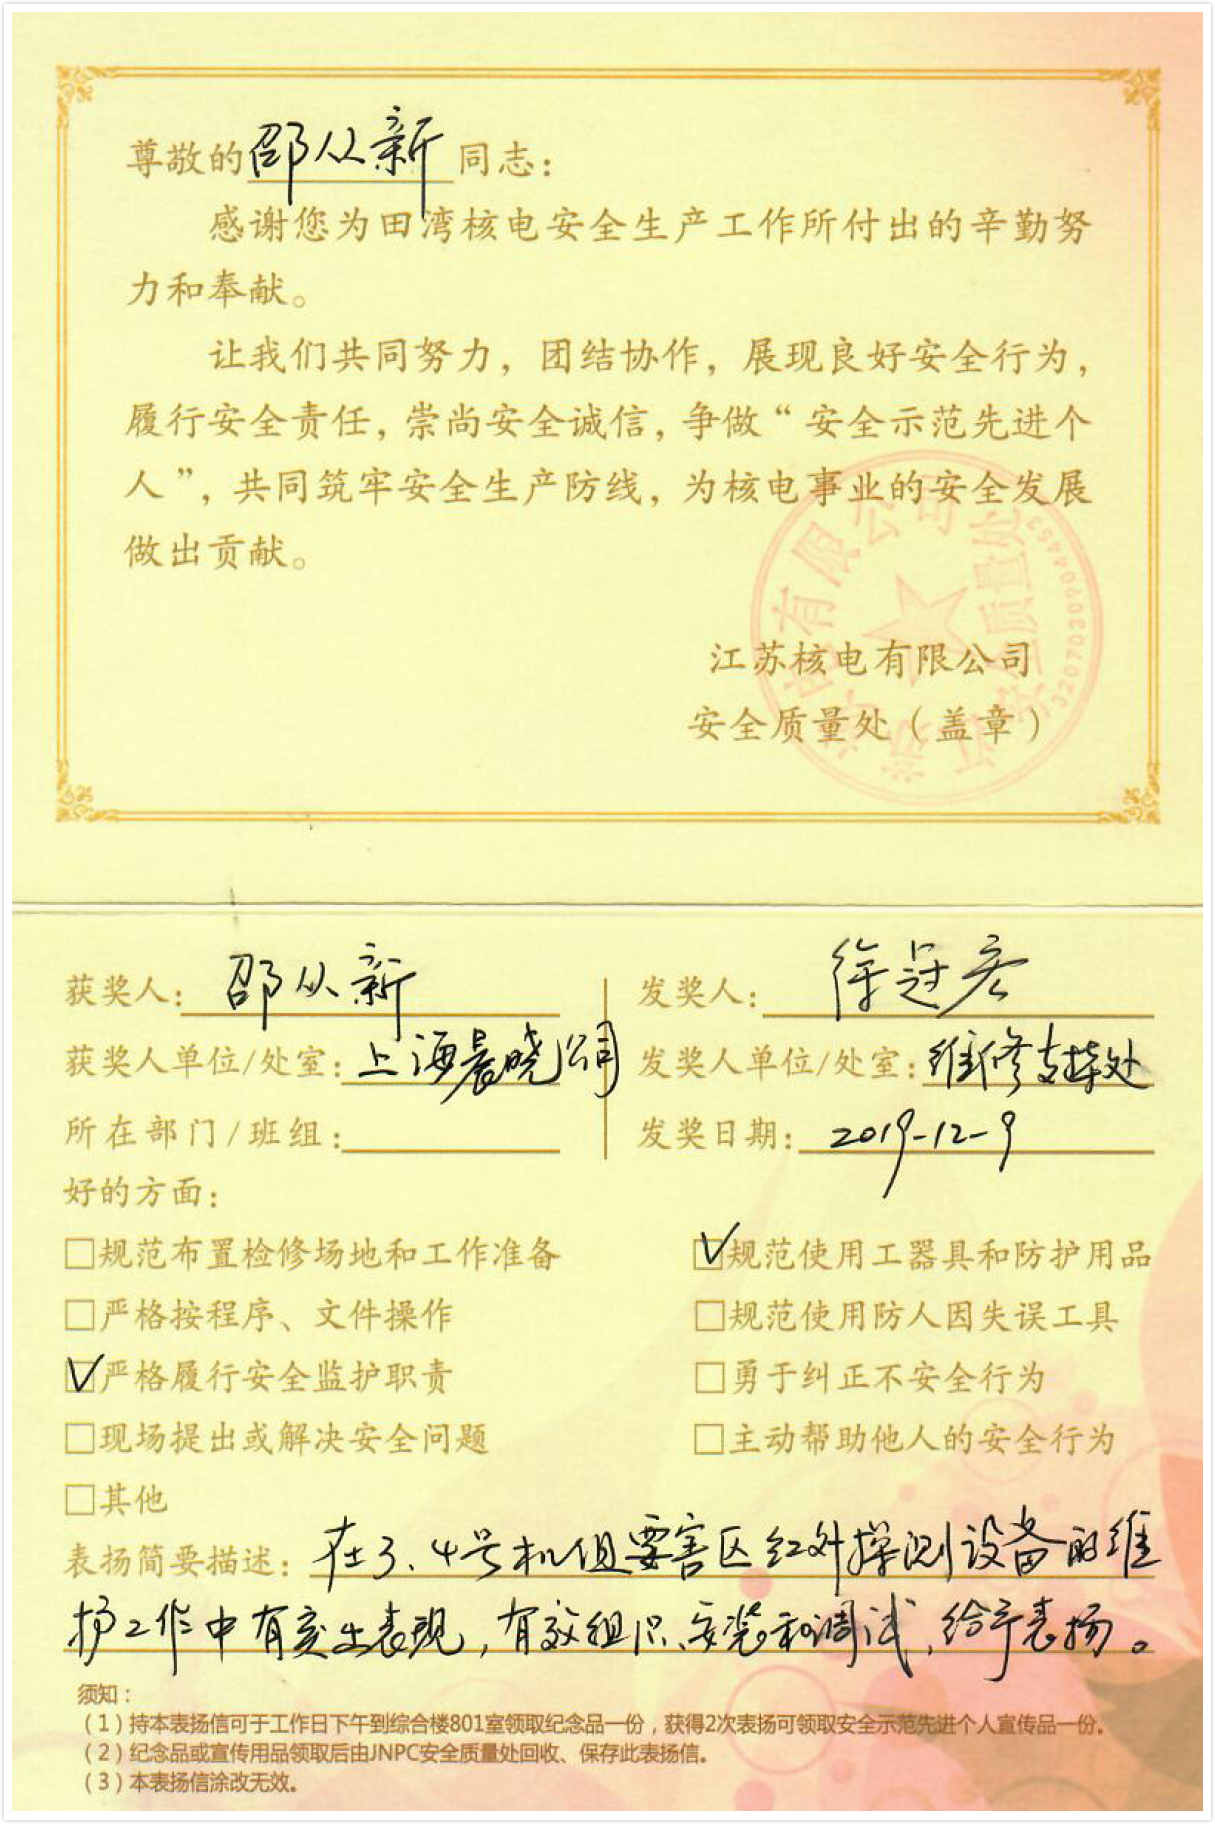 尊敬的邵从新同志：
感谢您为田湾核电安全生产工作所付出的辛勤努
力和奉献。
让我们共同努力，团结协作，展现良好安全行为，
履行安全责任，崇尚安全诚信，争做“安全示范先进个
人”，共同筑牢安全生产防线，为核电事业的安全发展
做出贡献。
江苏核电有限公司
安全质量处（盖章）
江苏核电有限公司
安全质量处
获奖人：邵从新
发奖人：徐冠宏
获奖人单位/处室：上海晨晓公司
发奖人单位/处室：维修支持处
所在部门/班组：
发奖日期：2019-12-9
好的方面：
□规范布置检修场地和工作准备
☑规范使用工器具和防护用品
□严格按程序、文件操作
□规范使用防人因失误工具
☑严格履行安全监护职责
□勇于纠正不安全行为
□现场提出或解决安全问题
□主动帮助他人的安全行为
□其他
表扬简要描述：在3、4号机组要害区红外探测设备的维
护工作中有突出表现，有效组织、安装和调试，给予表扬。
须知：
（1）持本表扬信可于工作日下午到综合楼801室领取纪念品一份，获得2次表扬可领取安全示范先进个人宣传品一份。
（2）纪念品或宣传用品领取后由JNPC安全质量处回收、保存此表扬信。
（3）本表扬信涂改无效。